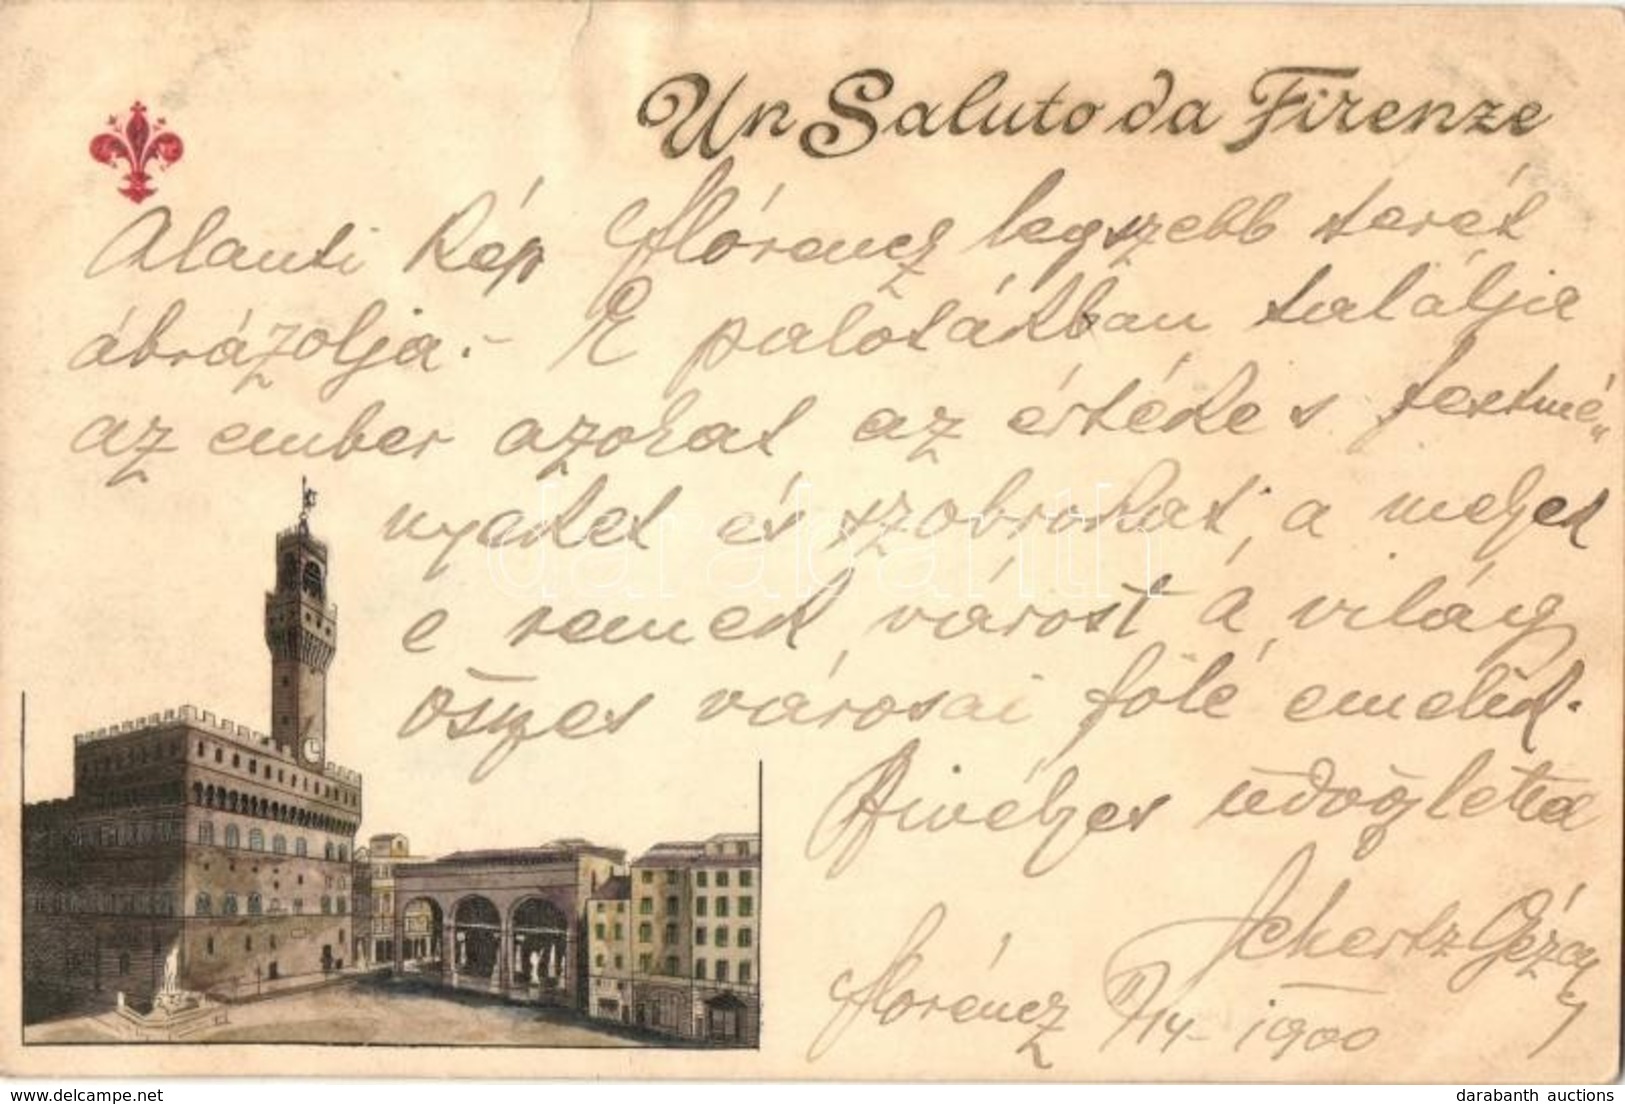 Un Saluto da Firenze
Alanti kép Flórencz legszebb terét
ábrázolja. - E palotákban találja
az ember azokat az értékes festmé„
nyeket és szobrokat, a melyek
e remek várost a világ
összes városai fölé emelik.
Szivélyes üdvözlettel
Schertz Géza
Flórencz V/14 - 1900
darabanth
darabanth auctions